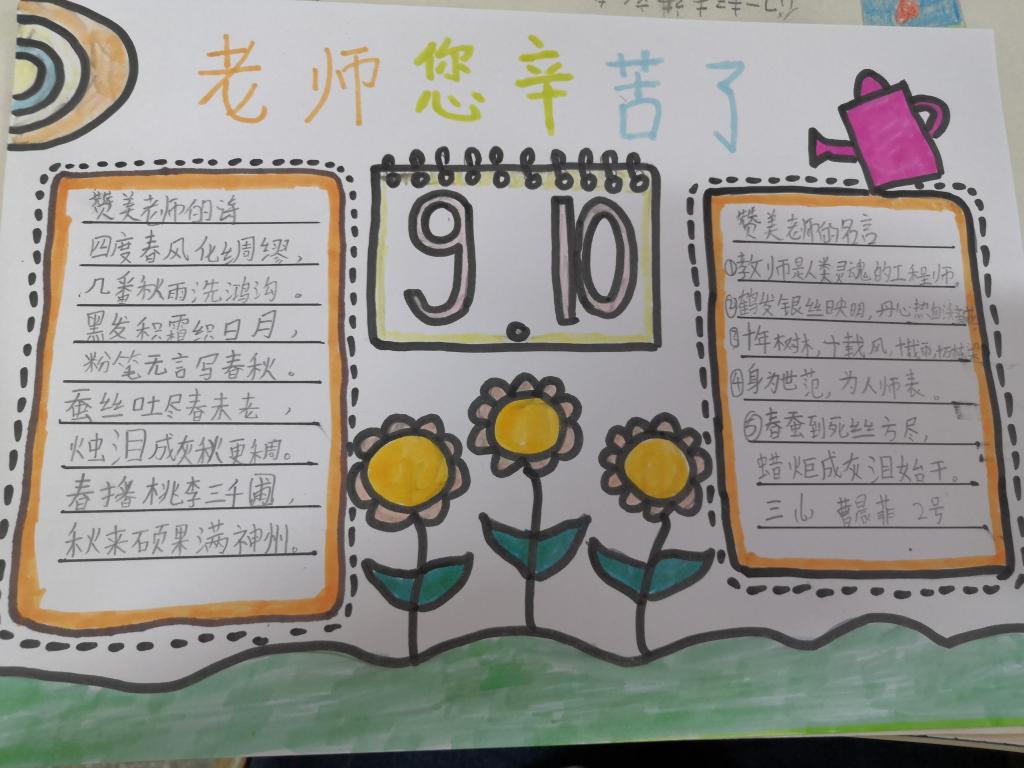 老师您辛苦了
赞美老师的诗
四度春风化绸缪，
几番秋雨洗鸿沟。
黑发积霜织日月，
粉笔无言写春秋。
蚕丝吐尽春未老，
烛泪成灰秋更稠。
春播桃李三千圃，
秋来硕果满神州。
9 10
赞美老师的名言
①教师是人类灵魂的工程师。
②鹤发银丝映明，丹心热血沃
③十年树木，十载风，十载雨，
④身为世范，为人师表。
⑤春蚕到死丝方尽，
蜡炬成灰泪始干。
三 曹 菲 2号